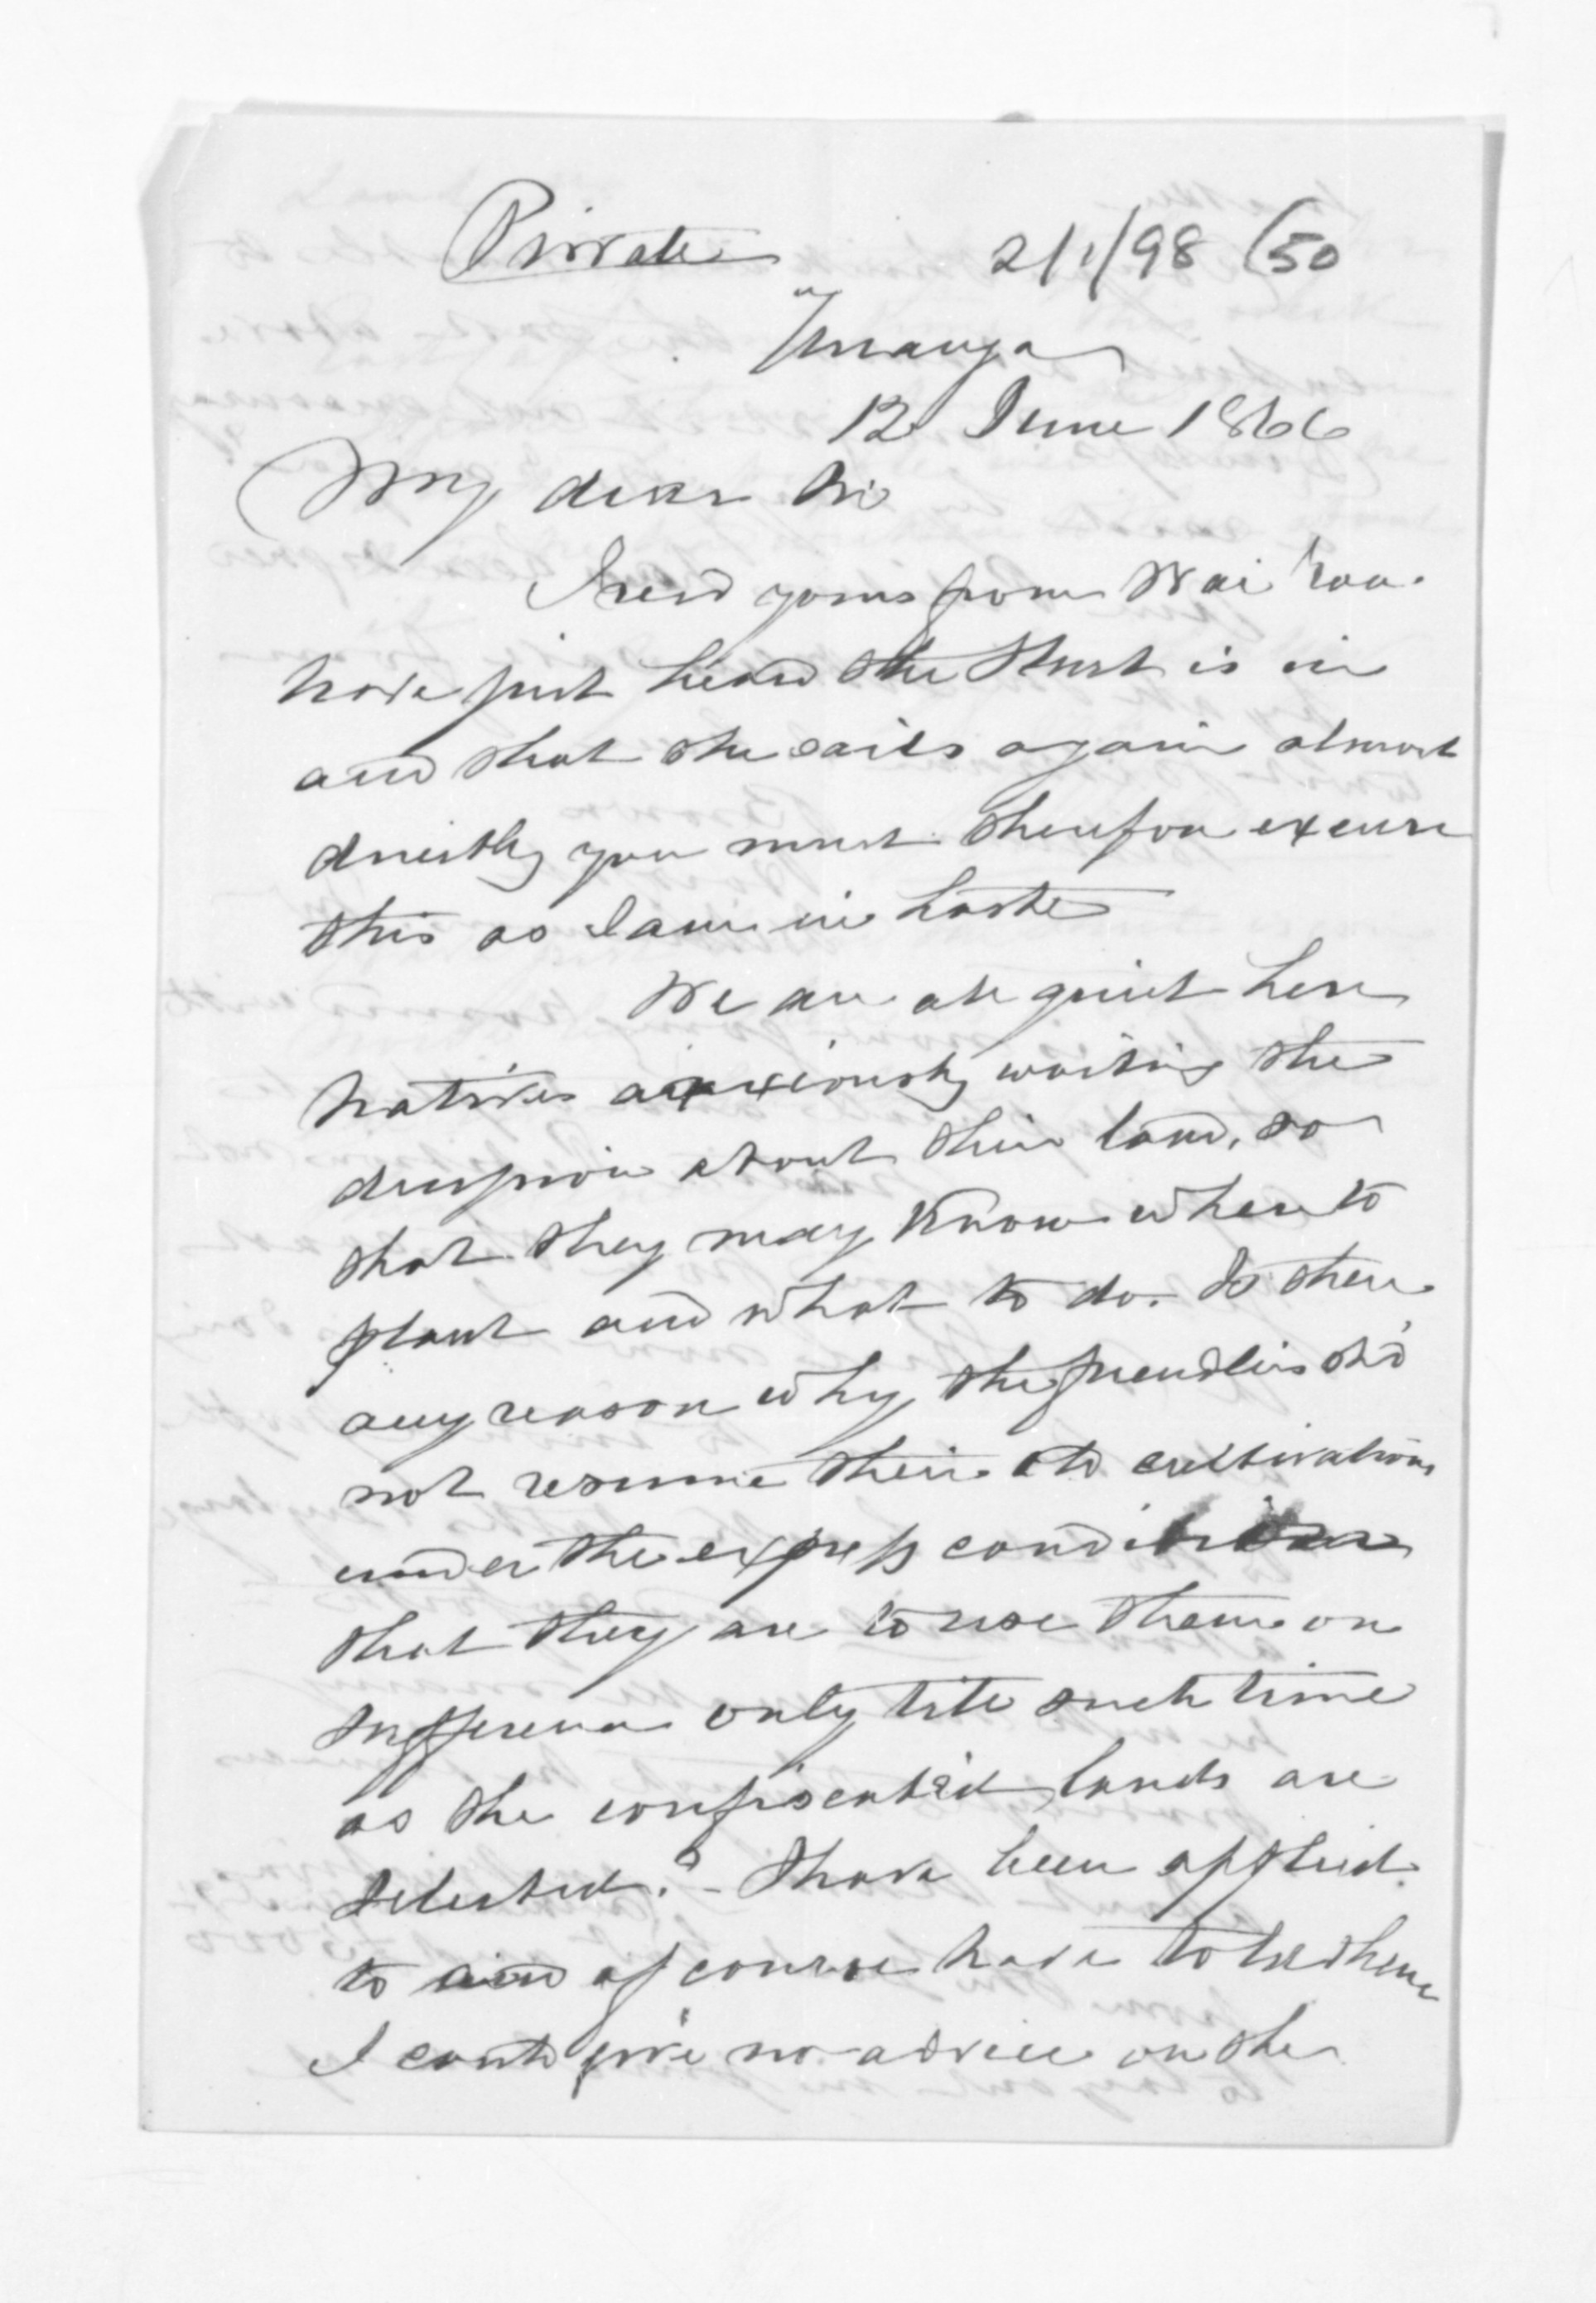 Private
2/1/98 (50
Turanga
12 June 1866
My dear Sir
I recd yours from Wai roa.
have just heard the Sturt is in
and that she sails again almost
directly you must therefore excuse
this as I am in haste
We are all quiet here
Natives anxiously waiting the
about their land, so
that they may know where to
plant and what to do. Is there
any reason why the friendlies shd
not resume their old cultivations
under the express condition
that they are to use them on
sufferance only till such time
as the confiscated lands are
selected? - I have been applied
to and of course have told them
I could give no advice on the